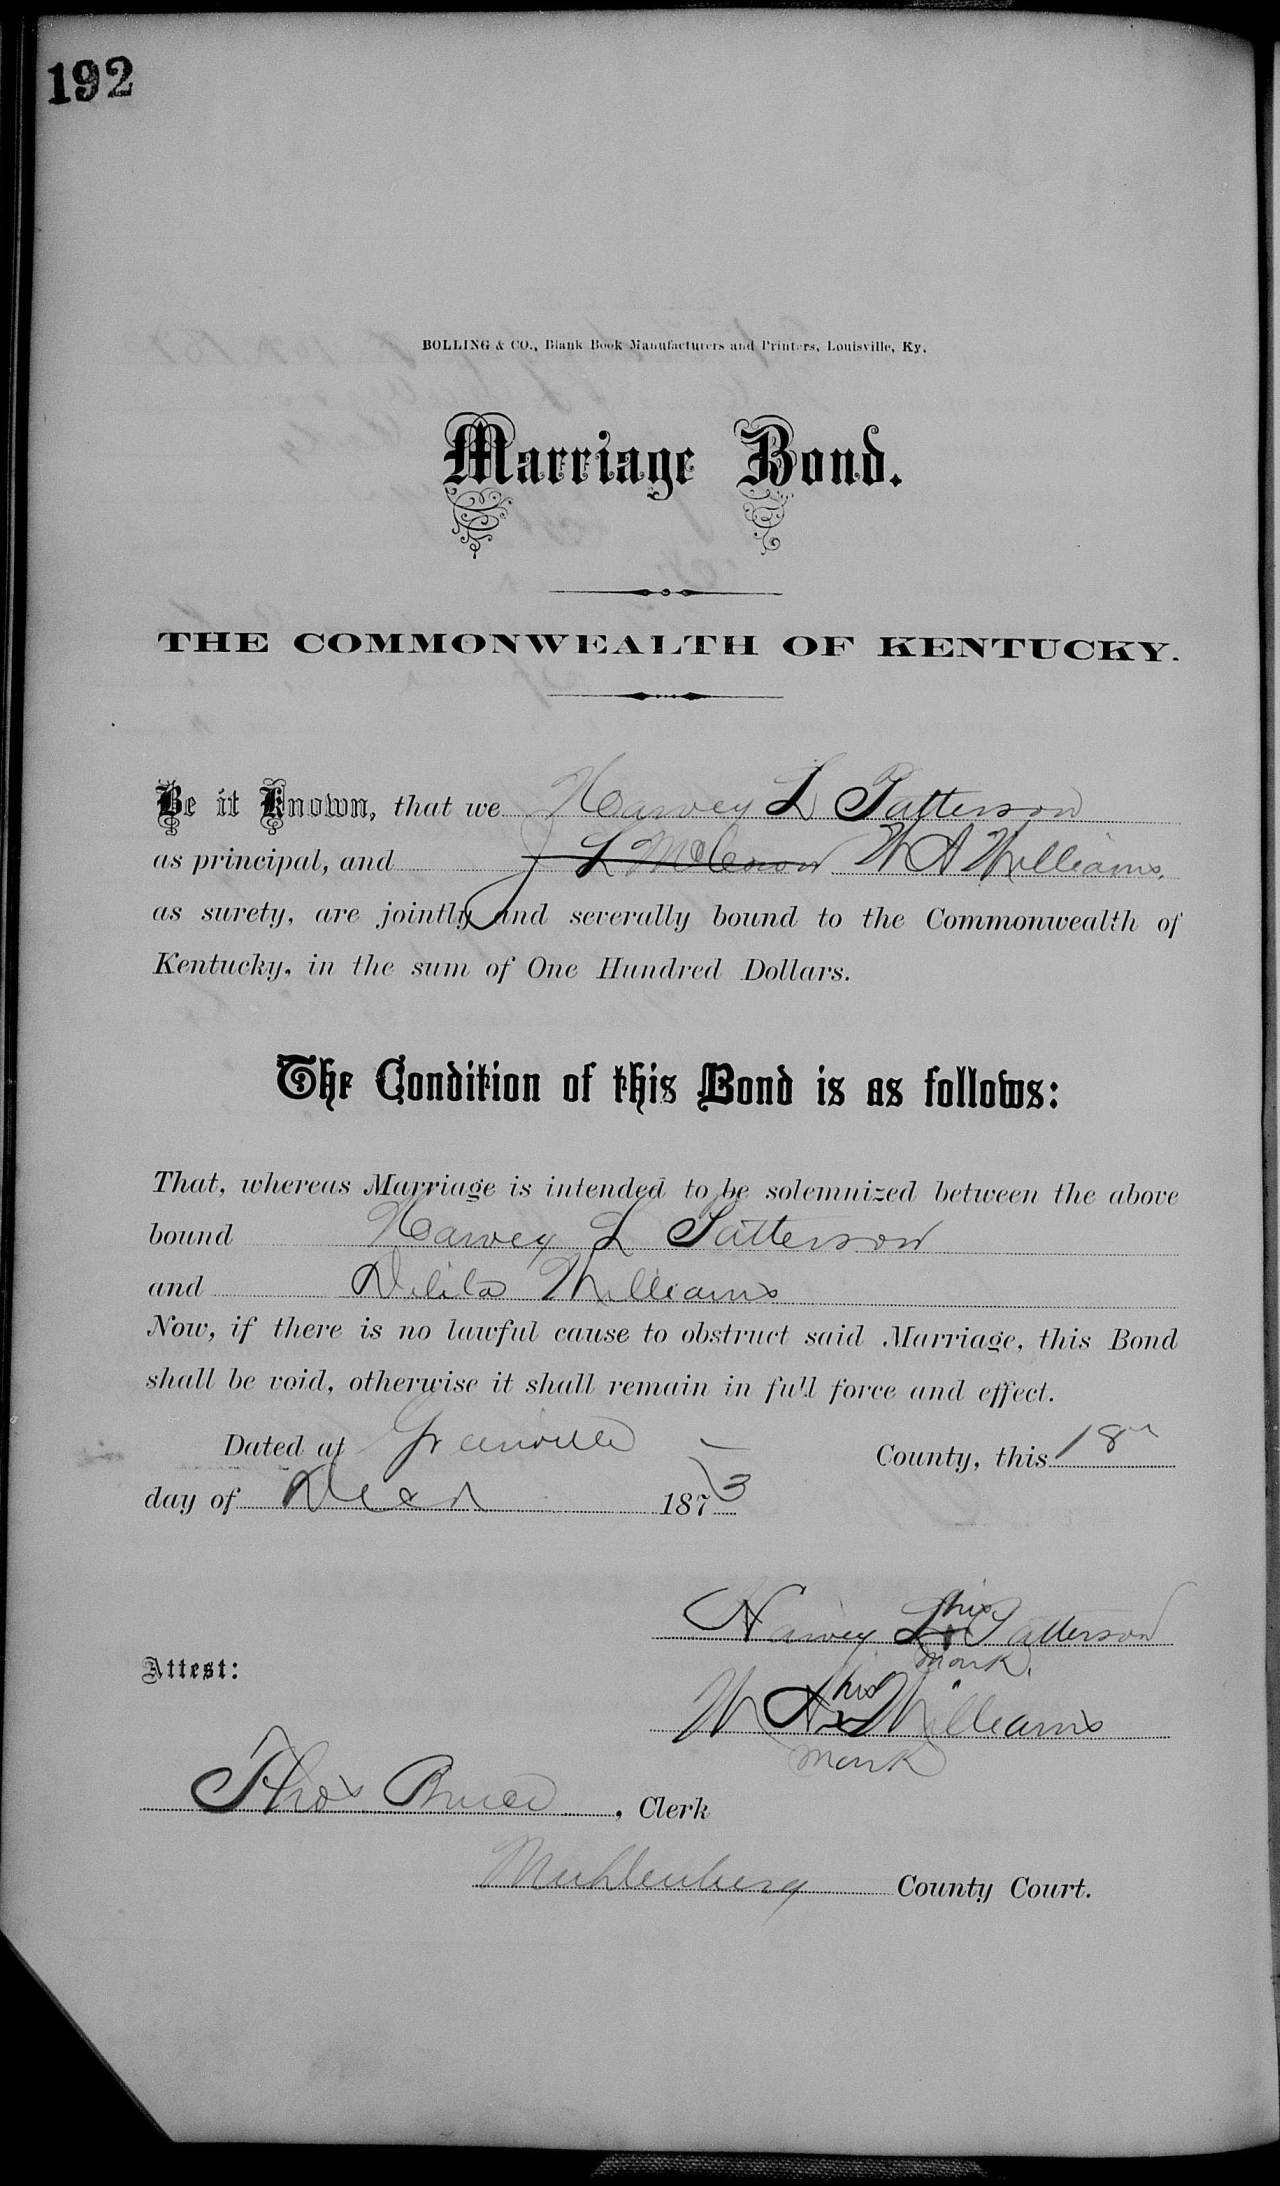 192
BOLLING & CO., Blank Book Manufacturers and Printers, Louisville, Ky.
Marriage Bond.
THE COMMONWEALTH OF KENTUCKY.
Be it Known, that we Harvey L Patterson
as principal, and J L McCown W A Williams.
as surety, are jointly and severally bound to the Commonwealth of
Kentucky, in the sum of One Hundred Dollars.
The Condition of this Bond is as follows:
That, whereas Marriage is intended to be solemnized between the above
bound Harvey L Patterson
and Delila Williams
Now, if there is no lawful cause to obstruct said Marriage, this Bond
shall be void, otherwise it shall remain in full force and effect.
Dated at Greenville County, this 18
day of 1873
Harvey L his x Patterson
mark.
Attest:
W A his x Williams
mark
Thos Bruce, Clerk
Muhlenberg County Court.